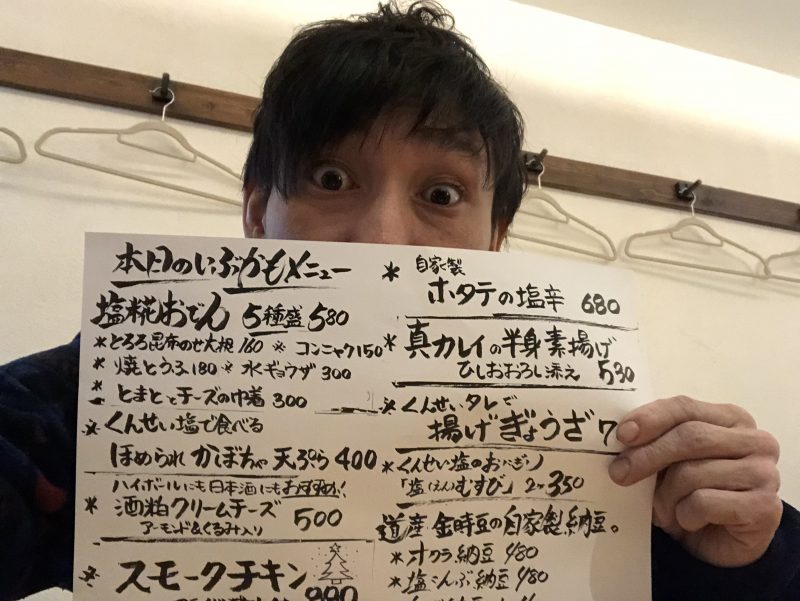 本日のいぶかもメニュー
塩糀おでん 5種盛 580
*とろろ昆布のせ大根 160 *コンニャク150
*焼とうふ180 *水ギョウザ 300
*とまととチーズの巾着 300
*くんせい塩で食べる
ほめられかぼちゃ天ぷら 400
ハイボールにも日本酒にもおすすめ!!
*酒粕クリームチーズ 500
アーモンド&くるみ入り
*スモークチキン
990
*自家製
ホタテの塩辛 680
*真カレイの半身素揚げ
ひしおおろし添え 530
*くんせいタレで
揚げぎょうざ 7
*くんせい塩のおにぎり
「塩むすび」 2ヶ 350
道産 金時豆の自家製納豆。
*オクラ納豆 480
*塩こんぶ納豆 480